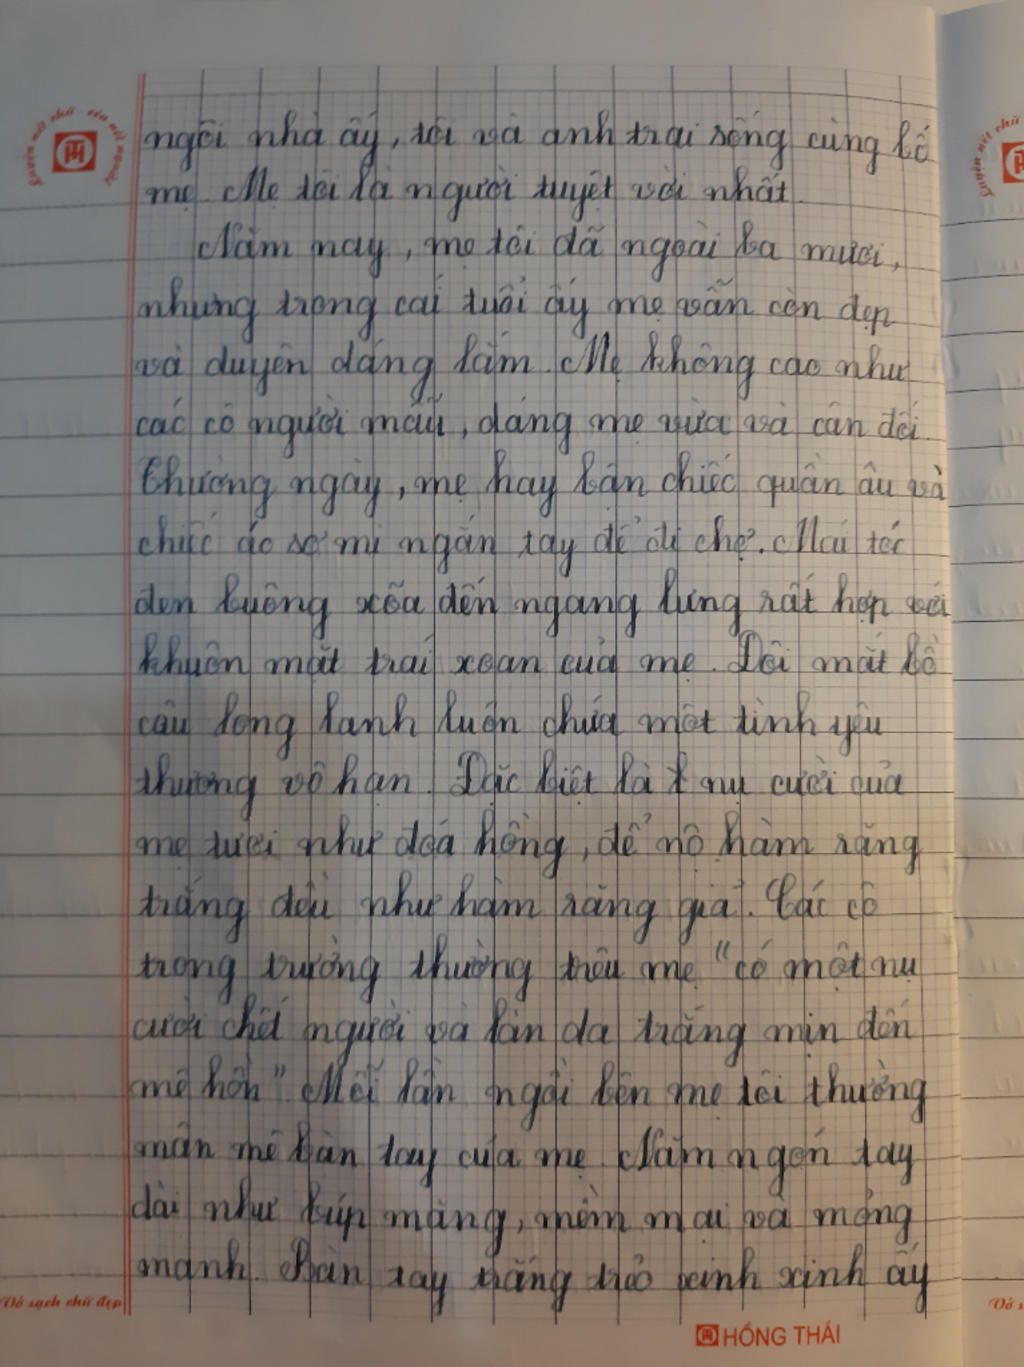 ngôi nhà ấy, tôi và anh trai sống cùng bố
mẹ. Mẹ tôi là người tuyệt vời nhất.
Năm nay, mẹ tôi đã ngoài ba mươi,
nhưng trong cái tuổi ấy mẹ vẫn còn đẹp
và duyên dáng lắm. Mẹ không cao như
các cô người mẫu, dáng mẹ vừa và cân đối.
Thường ngày, mẹ hay bận chiếc quần âu và
chiếc áo sơ mi ngắn tay để đi chợ. Mái tóc
đen buông xõa đến ngang lưng rất hợp với
khuôn mặt trái xoan của mẹ. Đôi mắt bồ
câu long lanh luôn chứa một tình yêu
thương vô hạn. Đặc biệt là nụ cười của
mẹ tươi như đoá hồng, để nộ hàm răng
trắng đều như hàm răng giả. Các cô
trong trường thường trêu mẹ "có một nụ
cười chết người và làn da trắng mịn đến
mê hồn" Mỗi lần ngồi bên mẹ tôi thường
mân mê bàn tay của mẹ. Năm ngón tay
dài như búp măng, mềm mại và mỏng
manh. Bàn tay trắng trẻo xinh xinh ấy
Luyện nét chữ rèn nết người
Vở sạch chữ đẹp
HỒNG THÁI
Luyện nét chữ
Vở s